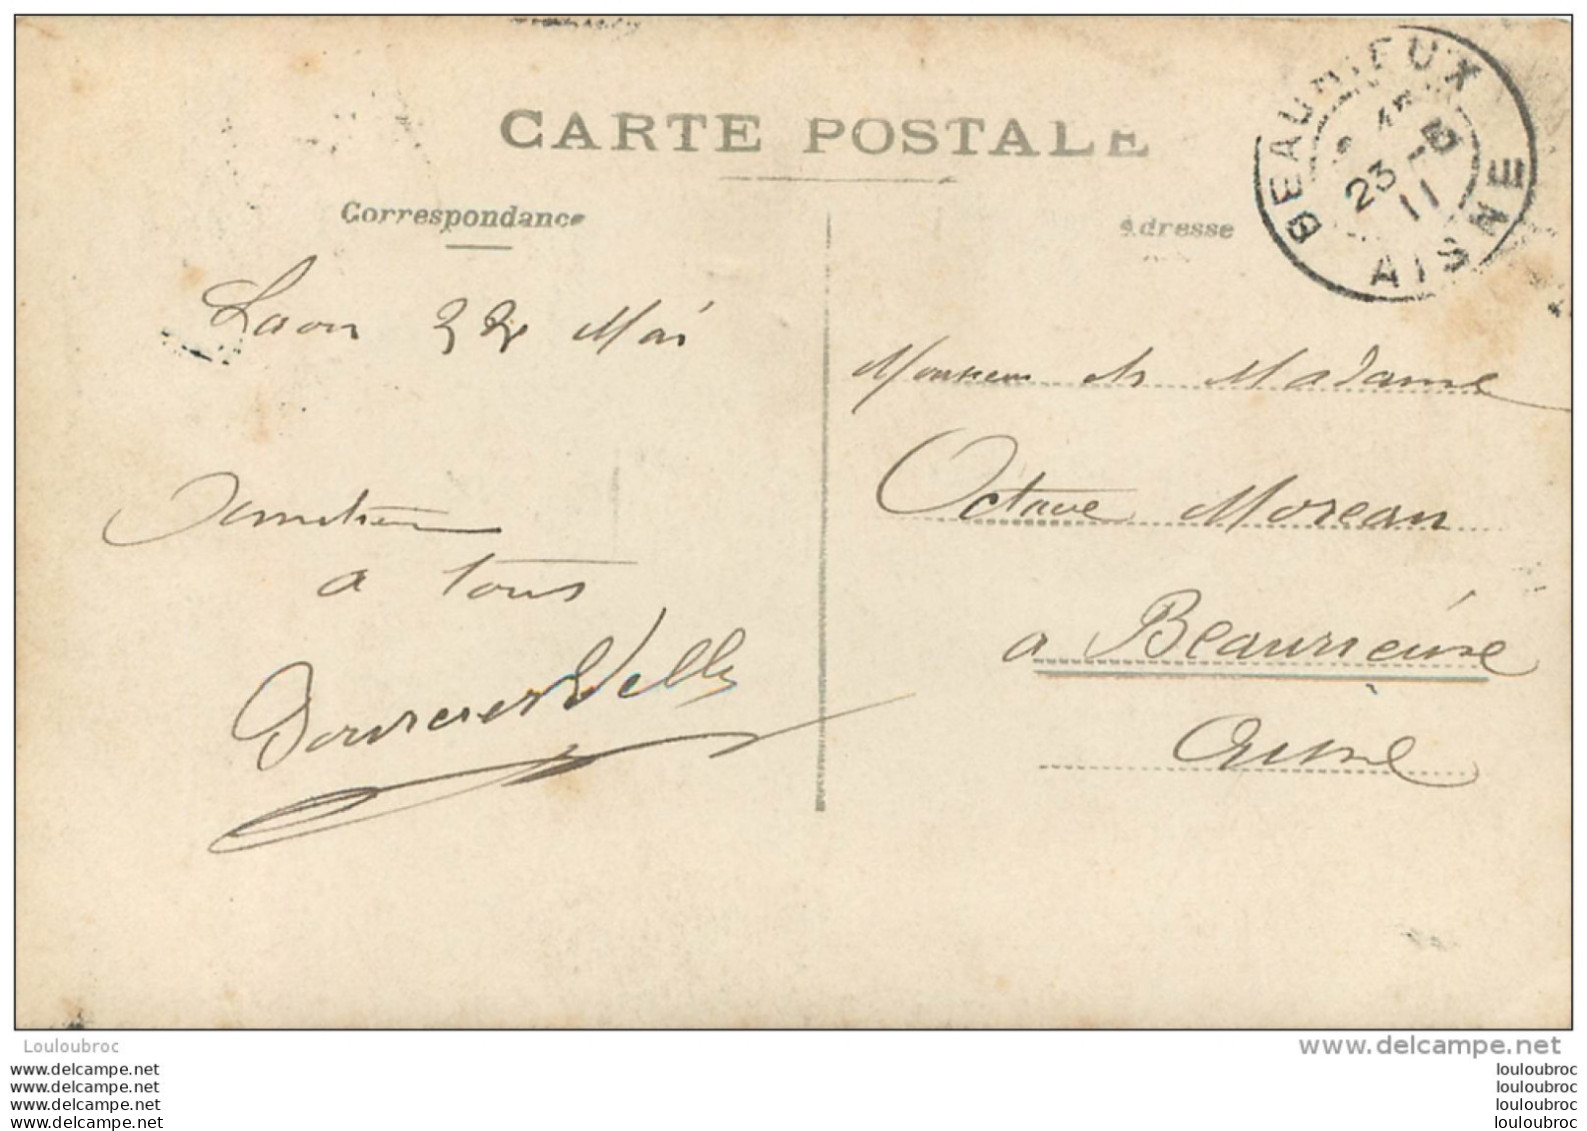 CARTE POSTALE
Correspondance
Adresse
BEAURIEUX
23 - 5
11
AISNE
Laon 22 Mai
Monsieur et Madame
Octave Moreau
a Beaurieuse
Aisne
a tous
Louloubroc
www.delcampe.net
www.delcampe.net
www.delcampe.net
www.delcampe.net
www.delcampe.net
louloubroc
louloubroc
louloubroc
louloubroc